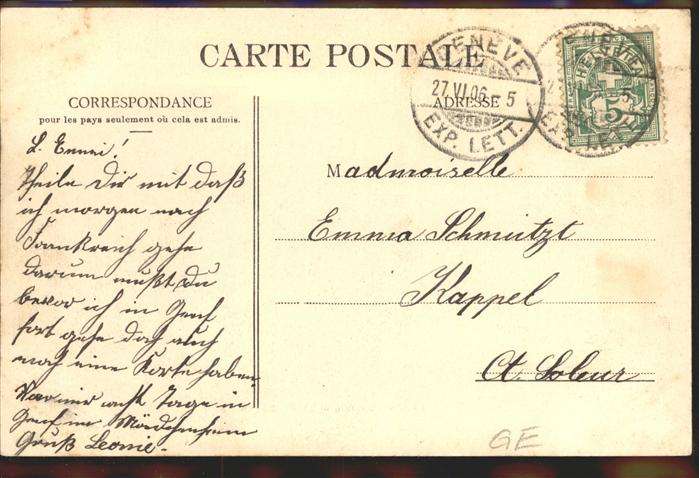 CARTE POSTALE
CORRESPONDANCE
pour les pays seulement où cela est admis.
ADRESSE
GENÈVE
27.VI.06. 5
EXP. LETT.
HELVETIA
5
L. Emmi!
Theile Dir mit daß
ich morgen nach
Frankreich gehe
darum mußt Du
bevor ich in Genf
fort gehe doch auch
noch eine Karte haben.
War nur acht Tage in
Genf im Mädchenheim
Gruß Leonie.
Mademoiselle
Emma Schmutzt
Kappel
Ct. Soleur
GE